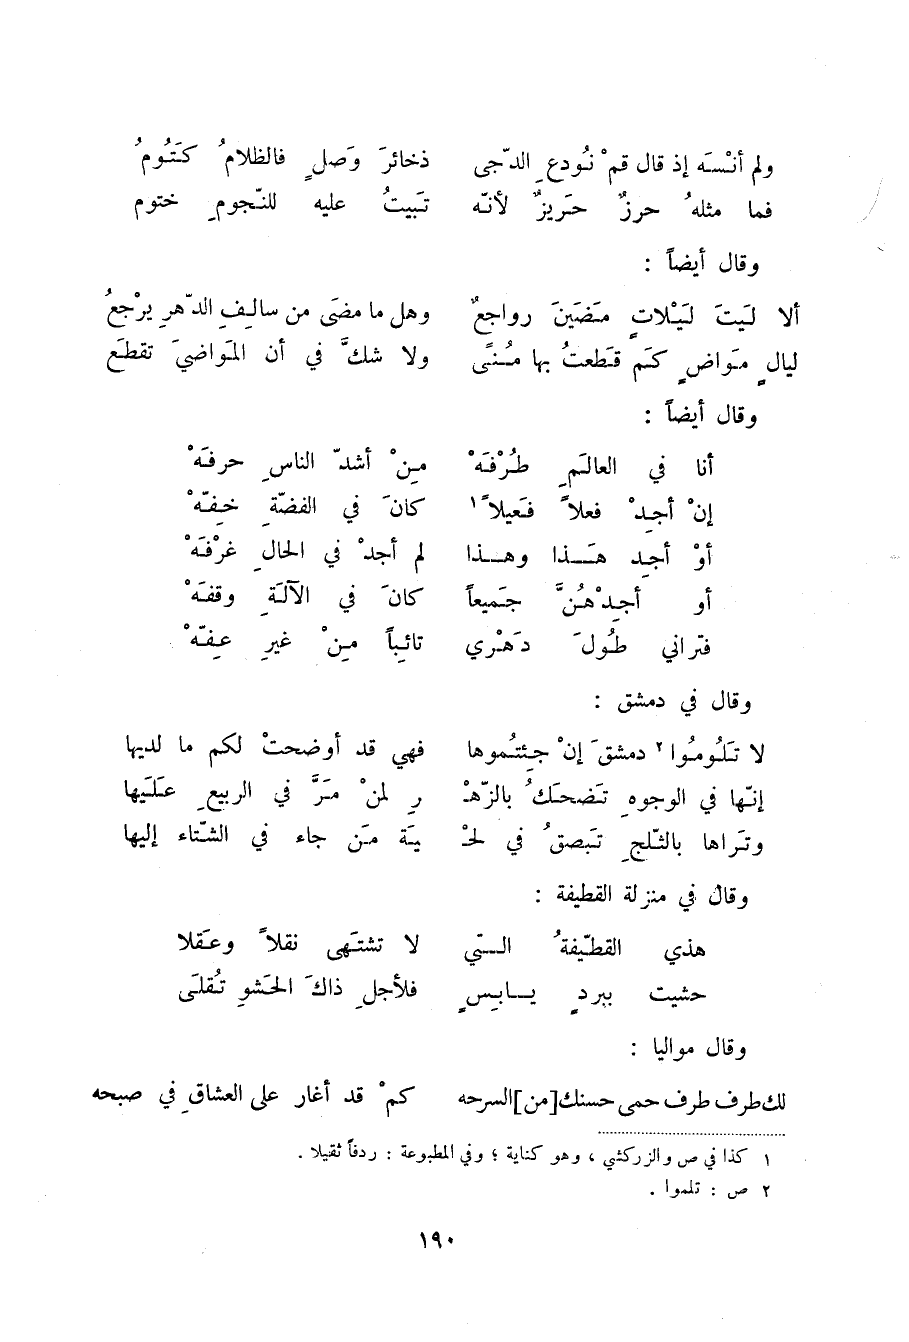 ولم أنْسَه إذ قال قمْ نُودعِ الدّجى ذخائرَ وَصلٍ فالظلامُ كَتُومُ
فما مثلهُ حرزٌ حَريزٌ لأنّه تَبيتُ عليه للنّجومِ ختوم
وقال أيضاً :
ألا لَيتَ لَيْلاتٍ مَضَيَنَ رواجعٌ وهل ما مضَى من سالِفِ الدّهرِ يرْجعُ
ليالٍ مَواضٍ كَم قَطعتُ بها مُنىً ولا شكَّ في أن المَواضيَ تقطَع
وقال أيضاً :
أنا في العالَمِ طُرْفَهْ مِنْ أشدّ الناسِ حرفَهْ
إنْ أجِدْ فعلاً فَعيلاً١ كانَ في الفضّةِ خِفّهْ
أوْ أجِد هَذا وهذا لم أجدْ في الحالِ غرْفَهْ
أو أجِدْهُنَّ جَميعاً كانَ في الآلَةِ وقفَهْ
فتراني طُولَ دَهْري تائِباً مِنْ غيرِ عِفّهْ
وقال في دمشق :
لا تَلُومُوا٢ دمشقَ إنْ جئتُموها فهي قد أوضحتْ لكم ما لديها
إنّها في الوجوهِ تَضحكُ بالزّهْـ ـرِ لمنْ مَرَّ في الربيعِ عَلَيها
وتَراها بالثّلجِ تَبصقُ في لحْـ ـيَة مَن جاء في الشّتاء إليها
وقال في منزلة القطيفة :
هذي القطّيفةُ الّتي لا تشتَهى نقلاً وعَقلا
حشيت ببردٍ يابِسٍ فلأجلِ ذاكَ الحَشوِ تُقلَى
وقال مواليا :
لك طرف طرف حمى حسنك [من] السرحه كمْ قد أغار على العشاقِ في صبحه
١ كذا في ص والزركشي ، وهو كناية ؛ وفي المطبوعة : ردفاً ثقيلا .
٢ ص : تلموا .
١٩٠